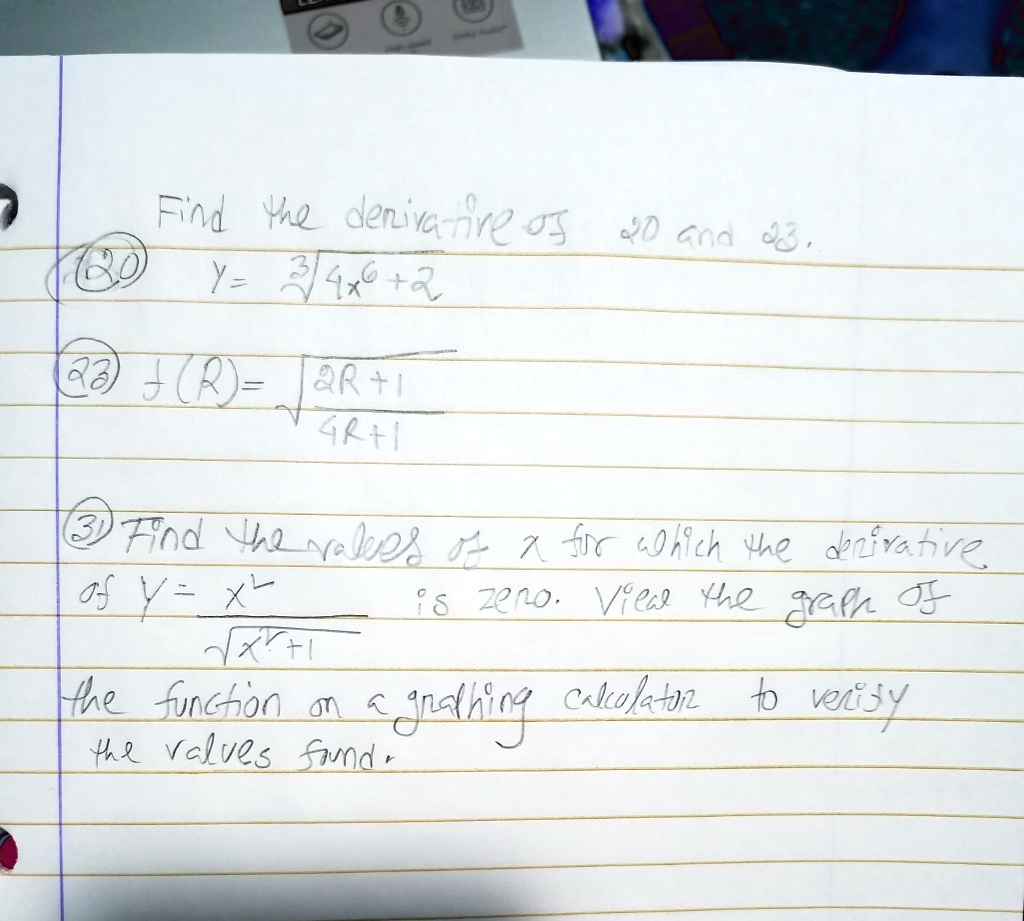 Find the derivative of 20 and 23.
20 y = ∛(4x⁶+2)
23 f(R) = √((2R+1)/(4R+1))
31 Find the values of x for which the derivative
of y = x²/√(x²+1) is zero. View the graph of
the function on a graphing calculator to verify
the values found.